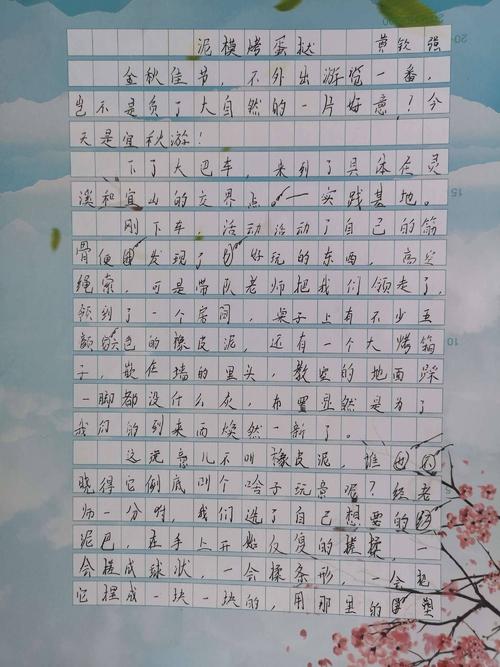 泥模烤蛋挞 黄钦强
金秋佳节，不外出游览一番，
岂不是负了大自然的一片好意？今
天是宜秋游！
下了大巴车，来到了具体在灵
溪和宜山的交界点——实践基地。
刚下车，活动活动了自己的筋
骨便发现了好玩的东西，高空
绳索，可是带队老师把我们领走了，
领到了一个房间，桌子上有不少五
颜六色的橡皮泥，还有一个大烤箱
子，嵌在墙的里头，教室的地面踩
一脚都没什么灰，布置显然是为了
我们的到来而焕然一新了。
这玩意儿不叫橡皮泥，谁
晓得它倒底叫个啥子玩意呢？经老
师一分吩，我们选了自己想要的
泥巴，在手上开始反复的搓揉，一
会搓成球状，一会揉条形，一会把
它捏成一块一块的，用那里的塑